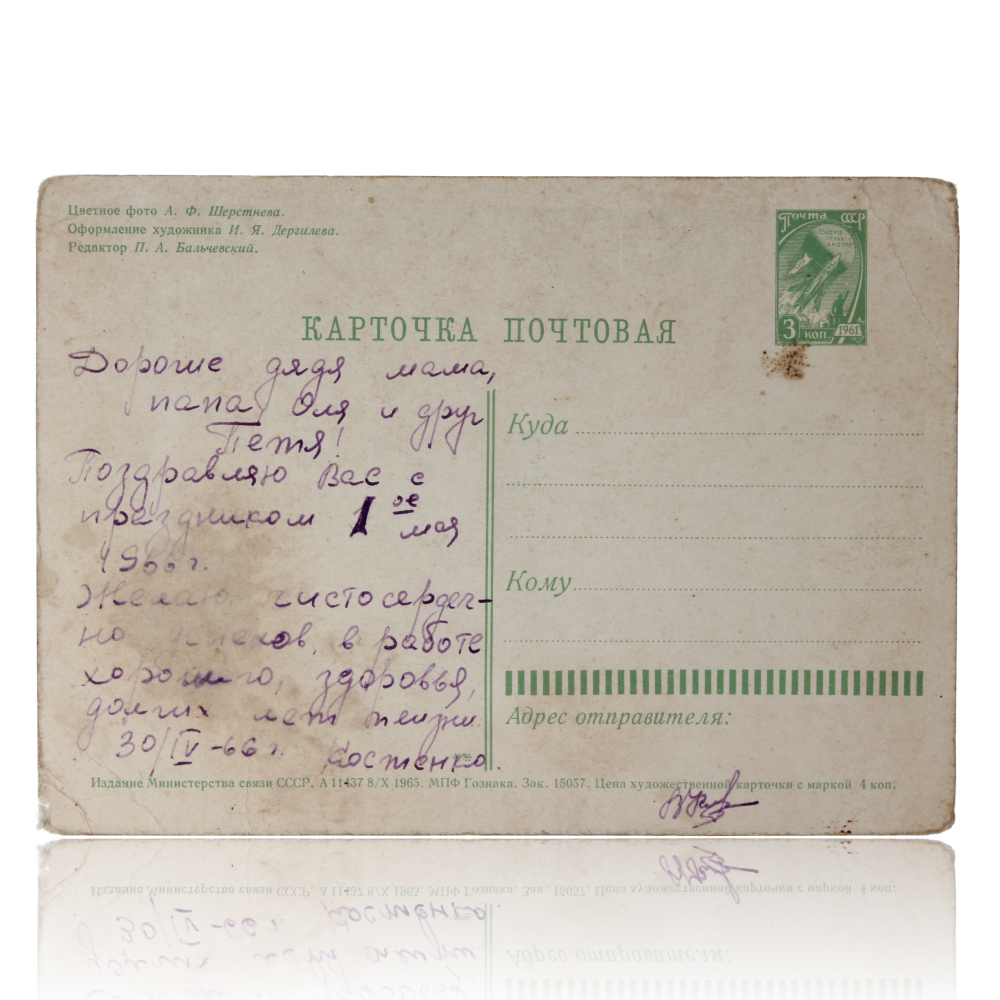 Цветное фото А. Ф. Шерстнева.
Оформление художника И. Я. Дергилева.
Редактор П. А. Бальчевский.
Почта СССР
3 коп. 1961
КАРТОЧКА ПОЧТОВАЯ
Дорогие дядя мама,
папа, Оля и друг
Петя!
Поздравляю Вас с
праздником 1 ое
мая
1966 г.
Желаю чистосердеч-
но успехов, в работе
хорошего, здоровья,
долгих лет жизни
30/IV-66 г. Костенко.
Куда
Кому
Адрес отправителя:
Издание Министерства связи СССР. А 11437 8/X 1965. МПФ Гознака. Зак. 15057. Цена художественной карточки с маркой 4 коп.